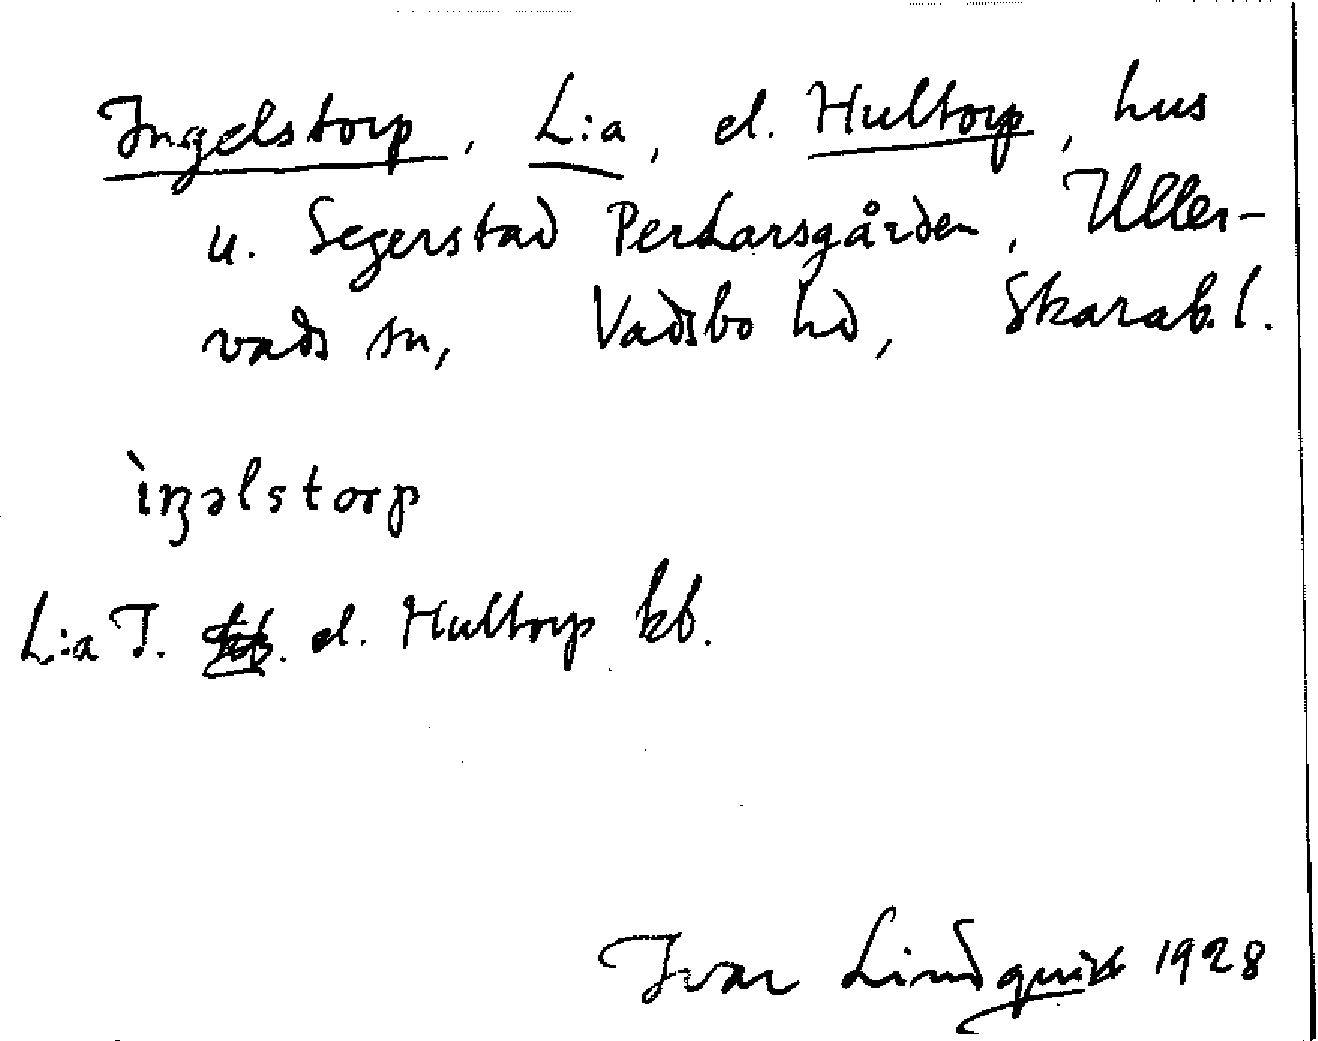 Ingelstorp, L:a, el. Hultorp, hus
u. Segerstad PerLarsgården, Uller-
vads sn, Vadsbo hd, Skarab.l.
ìŋəlstorp
L:a I. el. Hultorp kb.
Ivar Lindquist 1928